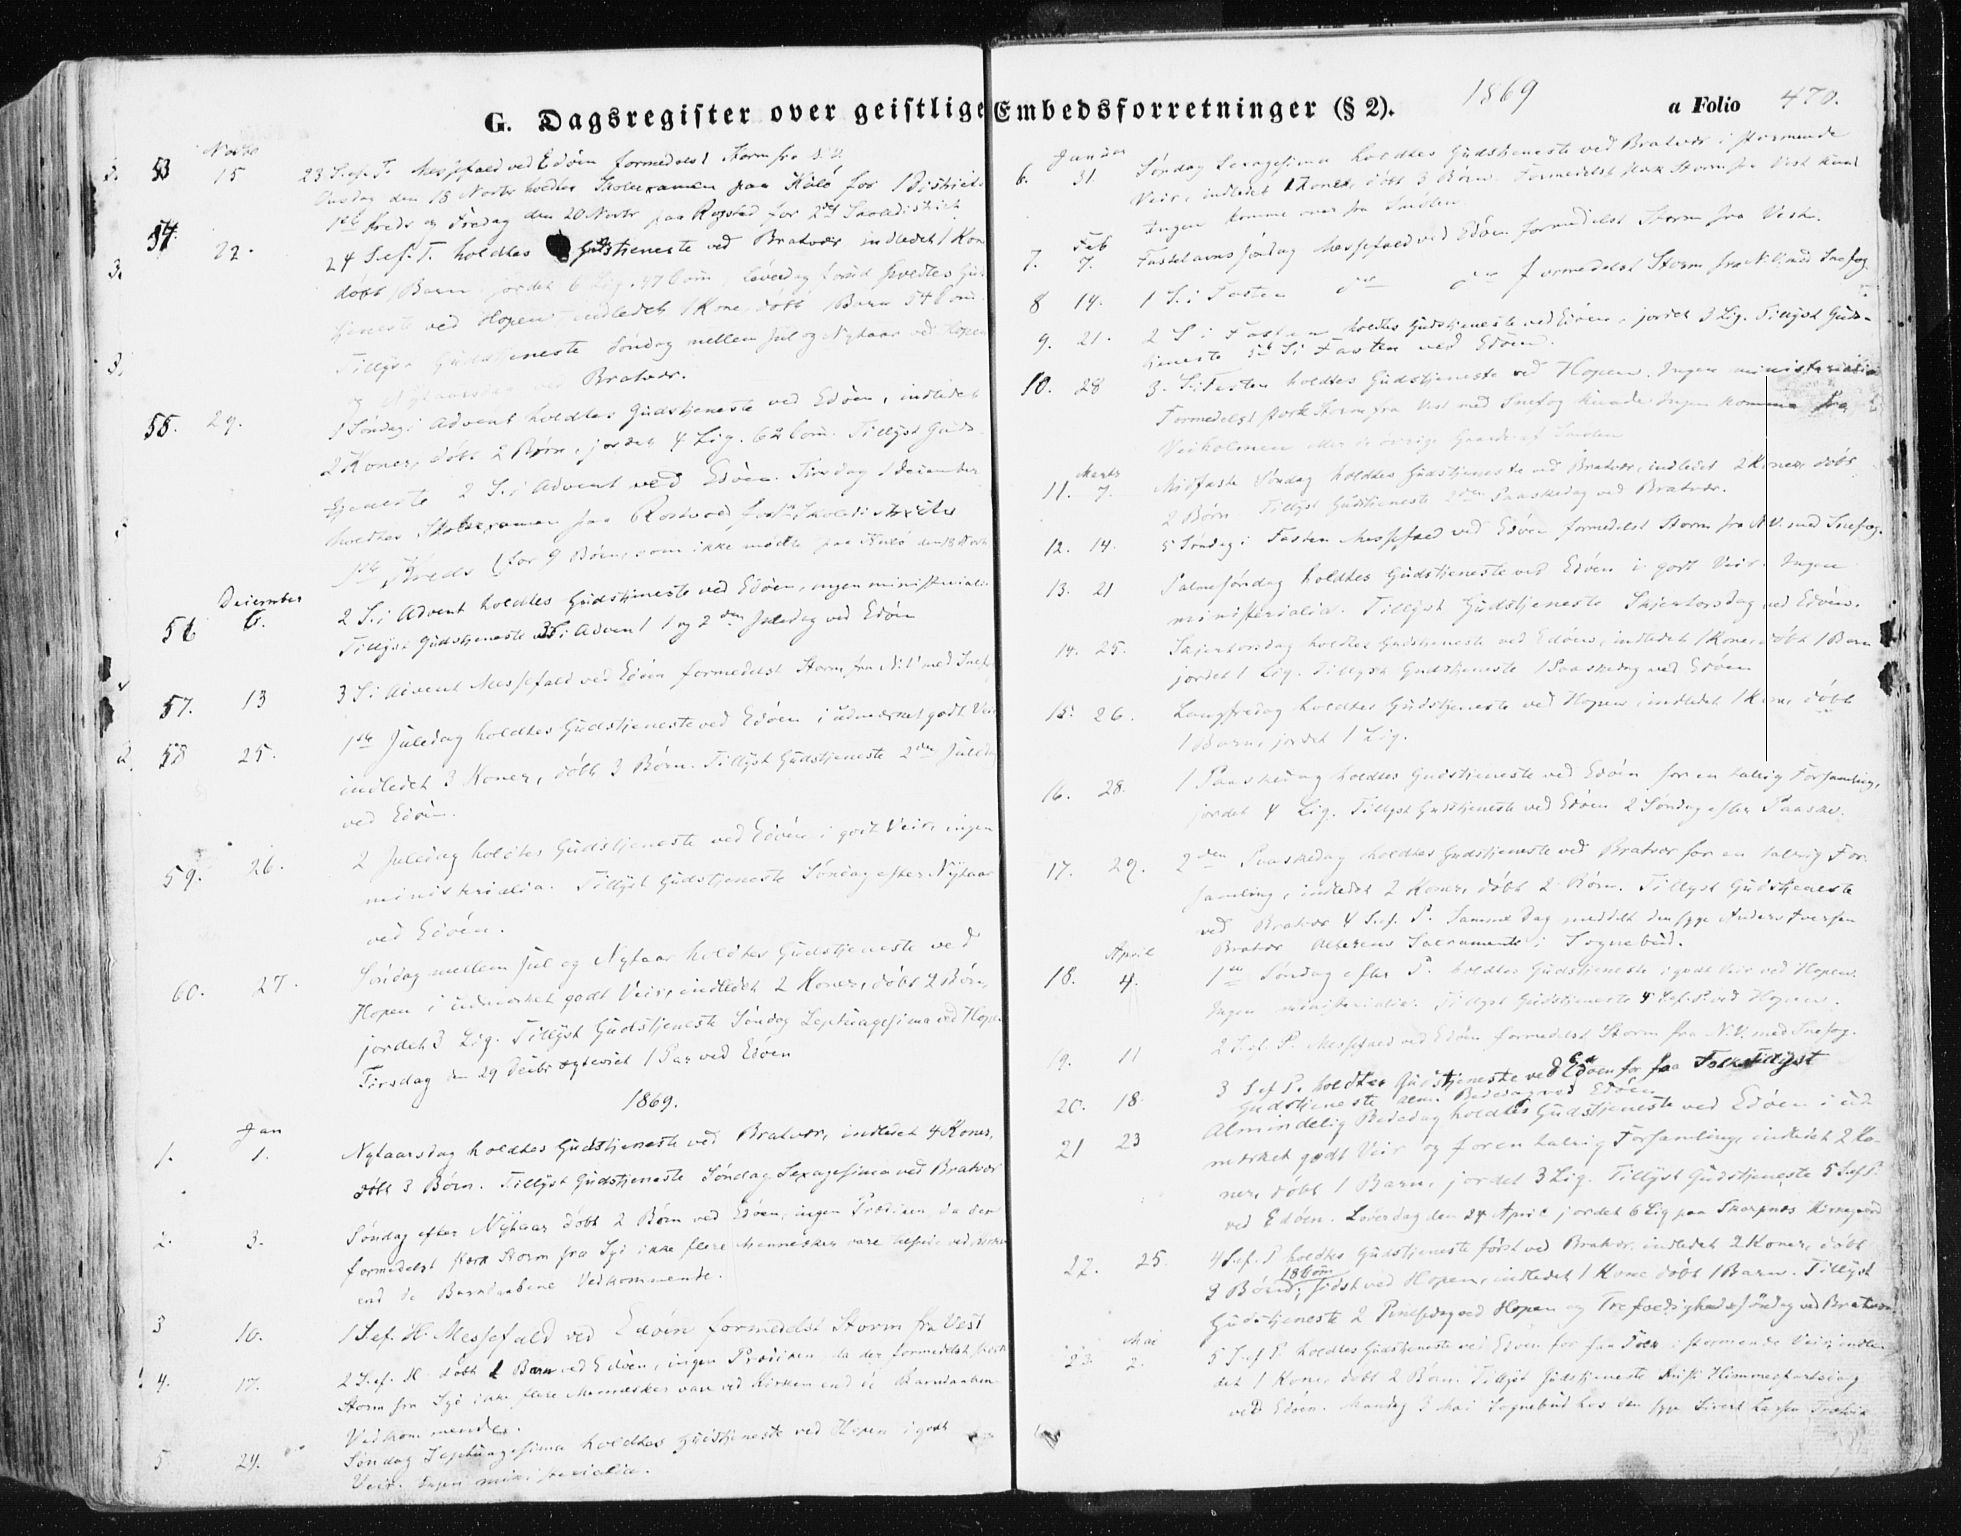 G. Dagsregister over geistlige Embedsforretninger (§ 2).
1869
a Folio 470.
Novbr
53 15 23 S. ef. T. Messefald ved Edöen formedelst Storm fra
Onsdag den 18 Novbr holdtes Skoleexamen paa Kulö for 1 District
1ste Kreds og Fredag den 20 Novbr paa Rogstad for 2det Skoledistrict
54. 22. 24 S. ef. T. holdtes Gudstjeneste ved Bratvær indledet 1 Kone
döbt 1 Barn, jordet 6 Lig, 47 Com. Löverdag forud holdtes Gud
tjeneste ved Hopen indledet 1 Kone, döbt 1 Barn 54 Com.
Tillyst Gudstjeneste Söndag mellem Jul og Nytaar ved Hopen
og Nytaarsdag ved Bratvær.
55. 29. 1 Söndag i Advent holdtes Gudstjeneste ved Edöen, indledet
2 Koner, döbt 2 Börn, jordet 4 Lig. 62 Com. Tillyst Guds
tjeneste 2 S. i Advent ved Edöen. Tirsdag 1 December
holdtes Skoleexamen paa Skoledistricts
1ste Kreds (for 9 Börn, som ikke mödte paa Kulö den 18 Novb
December
56 6. 2 S. i Advent holdtes Gudstjeneste ved Edöen, ingen ministerialia
Tillyst Gudstjeneste 3 S. i Advent 1 og 2den Juledag ved Edöen
57. 13 3 S. i Advent Messefald ved Edöen formedelst Storm fra N.V. med Snefog
58 25. 1ste Juledag holdtes Gudstjeneste ved Edöen i udmærket godt Veir
indledet 3 Koner, döbt 3 Börn. Tillyst Gudstjeneste 2den Juledag
ved Edöen.
59. 26. 2 Juledag holdtes Gudstjeneste ved Edöen i godt Veir, ingen
ministerialia. Tillyst Gudstjeneste Söndag efter Nytaar
ved Edöen.
60. 27. Söndag mellem Jul og Nytaar holdtes Gudstjeneste ved
Hopen i udmærket godt Veir, indledet 2 Koner, döbt 2 Börn,
jordet 3 Lig. Tillyst Gudstjeneste Söndag Septuagesima ved Hopen
Tirsdag den 29 Decbr ægteviet 1 Par ved Edöen
1869.
Jan
1. 1. Nytaarsdag holdtes Gudstjeneste ved Bratvær, indledet 4 Koner,
döbt 3 Börn. Tillyst Gudstjeneste Söndag Sexagesima ved Bratvær
2. 3. Söndag efter Nytaar döbt 2 Börn ved Edöen, ingen Prædiken, da der
formedelst stærk Storm fra Syd ikke flere Mennesker vare tilstede ved
end de Barndaabene Vedkommende.
3 10. 1 S. ef. H. Messefald ved Edöen formedelst Storm fra Vest
4. 17. 2 S. ef. H. döbt 1 Barn ved Edöen, ingen Prædiken da der formedelst stærk
Storm fra Syd ikke flere Mennesker vare ved Kirken end de Barndaaben
Vedkommende.
5. 24. Söndag Septuagesima holdtes Gudstjeneste ved Hopen i godt
Veir. Ingen ministerialia.
Januar
6. 31 Söndag Sexagesima holdtes Gudstjeneste ved Bratvær i stormende
Veir, indledet 1 Kone, döbt 3 Börn. Formedelst stærk Storm fra Vest kunde
Ingen komme over fra Smölen
Feb
7. 7. Fastelavns söndag Messefald ved Edöen formedelst Storm fra Vest.
8 14. 1 S. i Fasten do do formedelst Storm fra N.V. med Snefog
9. 21. 2 S. i Fasten holdtes Gudstjeneste ved Edöen, jordet 3 Lig. Tillyst Guds-
tjeneste 5te S. i Fasten ved Edöen.
10. 28 3. S. i Fasten holdtes Gudstjeneste ved Hopen. Ingen ministerialia
Formedelst stærk Storm fra Vest med Snefog kunde Ingen komme fra
Veiholmen eller de övrige Gaarde af Smölen
Marts
11. 7. Midfaste Söndag holdtes Gudstjeneste ved Bratvær, indledet 2 Koner, döbt
2 Börn. Tillyst Gudstjeneste 2den Paaskedag ved Bratvær.
12. 14. 5 Söndag i Fasten Messefald ved Edöen formedelst Storm fra N.V. med Snefog.
13. 21 Palmesöndag holdtes Gudstjeneste ved Edöen i godt Veir. Ingen
ministerialia. Tillyst Gudstjeneste Skjertorsdag ved Edöen.
14. 25. Skjertorsdag holdtes Gudstjeneste ved Edöen, indledet 1 Kone, döbt 1 Barn
jordet 1 Lig. Tillyst Gudstjeneste 1 Paaskedag ved Edöen
15. 26. Langfredag holdtes Gudstjeneste ved Hopen indledet 1 Kone, döbt
1 Barn, jordet 1 Lig.
16. 28. 1 Paaskedag holdtes Gudstjeneste ved Edöen for en talrig Forsamling,
jordet 4 Lig. Tillyst Gudstjeneste ved Edöen 2 Söndag efter Paaske.
17. 29. 2den Paaskedag holdtes Gudstjeneste ved Bratvær for en talrig For-
samling, indledet 2 Koner, döbt 2 Börn. Tillyst Gudstjeneste
ved Bratvær 4 S. ef. P. Samme Dag meddelt den syge Anders Iversen
Bratvær Alterens Sacramente i Sognebud.
April
18. 4. 1ste Söndag efter P. holdtes Gudstjeneste i godt Veir ved Hopen.
Ingen ministerialia. Tillyst Gudstjeneste 4 S. ef. P. ved Hopen.
19. 11 2 S. ef. P. Messefald ved Edöen formedelst Storm fra N.V. med Snefog.
20. 18. 3 S. ef P. holdtes Gudstjeneste ved Edöen for faa Folk. Tillyst
Gudstjeneste alm. Bededag ved Edöen
21 23 Almindelig Bededag holdtes Gudstjeneste ved Edöen i ud-
mærket godt Veir og for en talrig Forsamling, indledet 2 Ko-
ner, döbt 1 Barn, jordet 3 Lig. Tillyst Gudstjeneste 5 S. ef. P.
ved Edöen. Löverdag den 24 April jordet 6 Lig paa Skarpnes Kirkegaard
22. 25. 4 S. ef. P. holdtes Gudstjeneste först ved Bratvær, indledet 2 Koner, döbt
3 Börn, 18 Com. sidst ved Hopen, indledet 1 Kone döbt 1 Barn. Tillyst
Gudstjeneste 2 Pintsedag ved Hopen og Trefoldighedssöndag ved Bratvær
Mai
23. 2. 5 S. ef P. holdtes Gudstjeneste ved Edöen for faa Folk i stormende Veir, indle-
det 1 Kone, döbt 2 Börn. Tillyst Gudstjeneste Kristi Himmelfartsdag
ved Edöen. Mandag 3 Mai Sognebud hos den syge Sivert Larsen